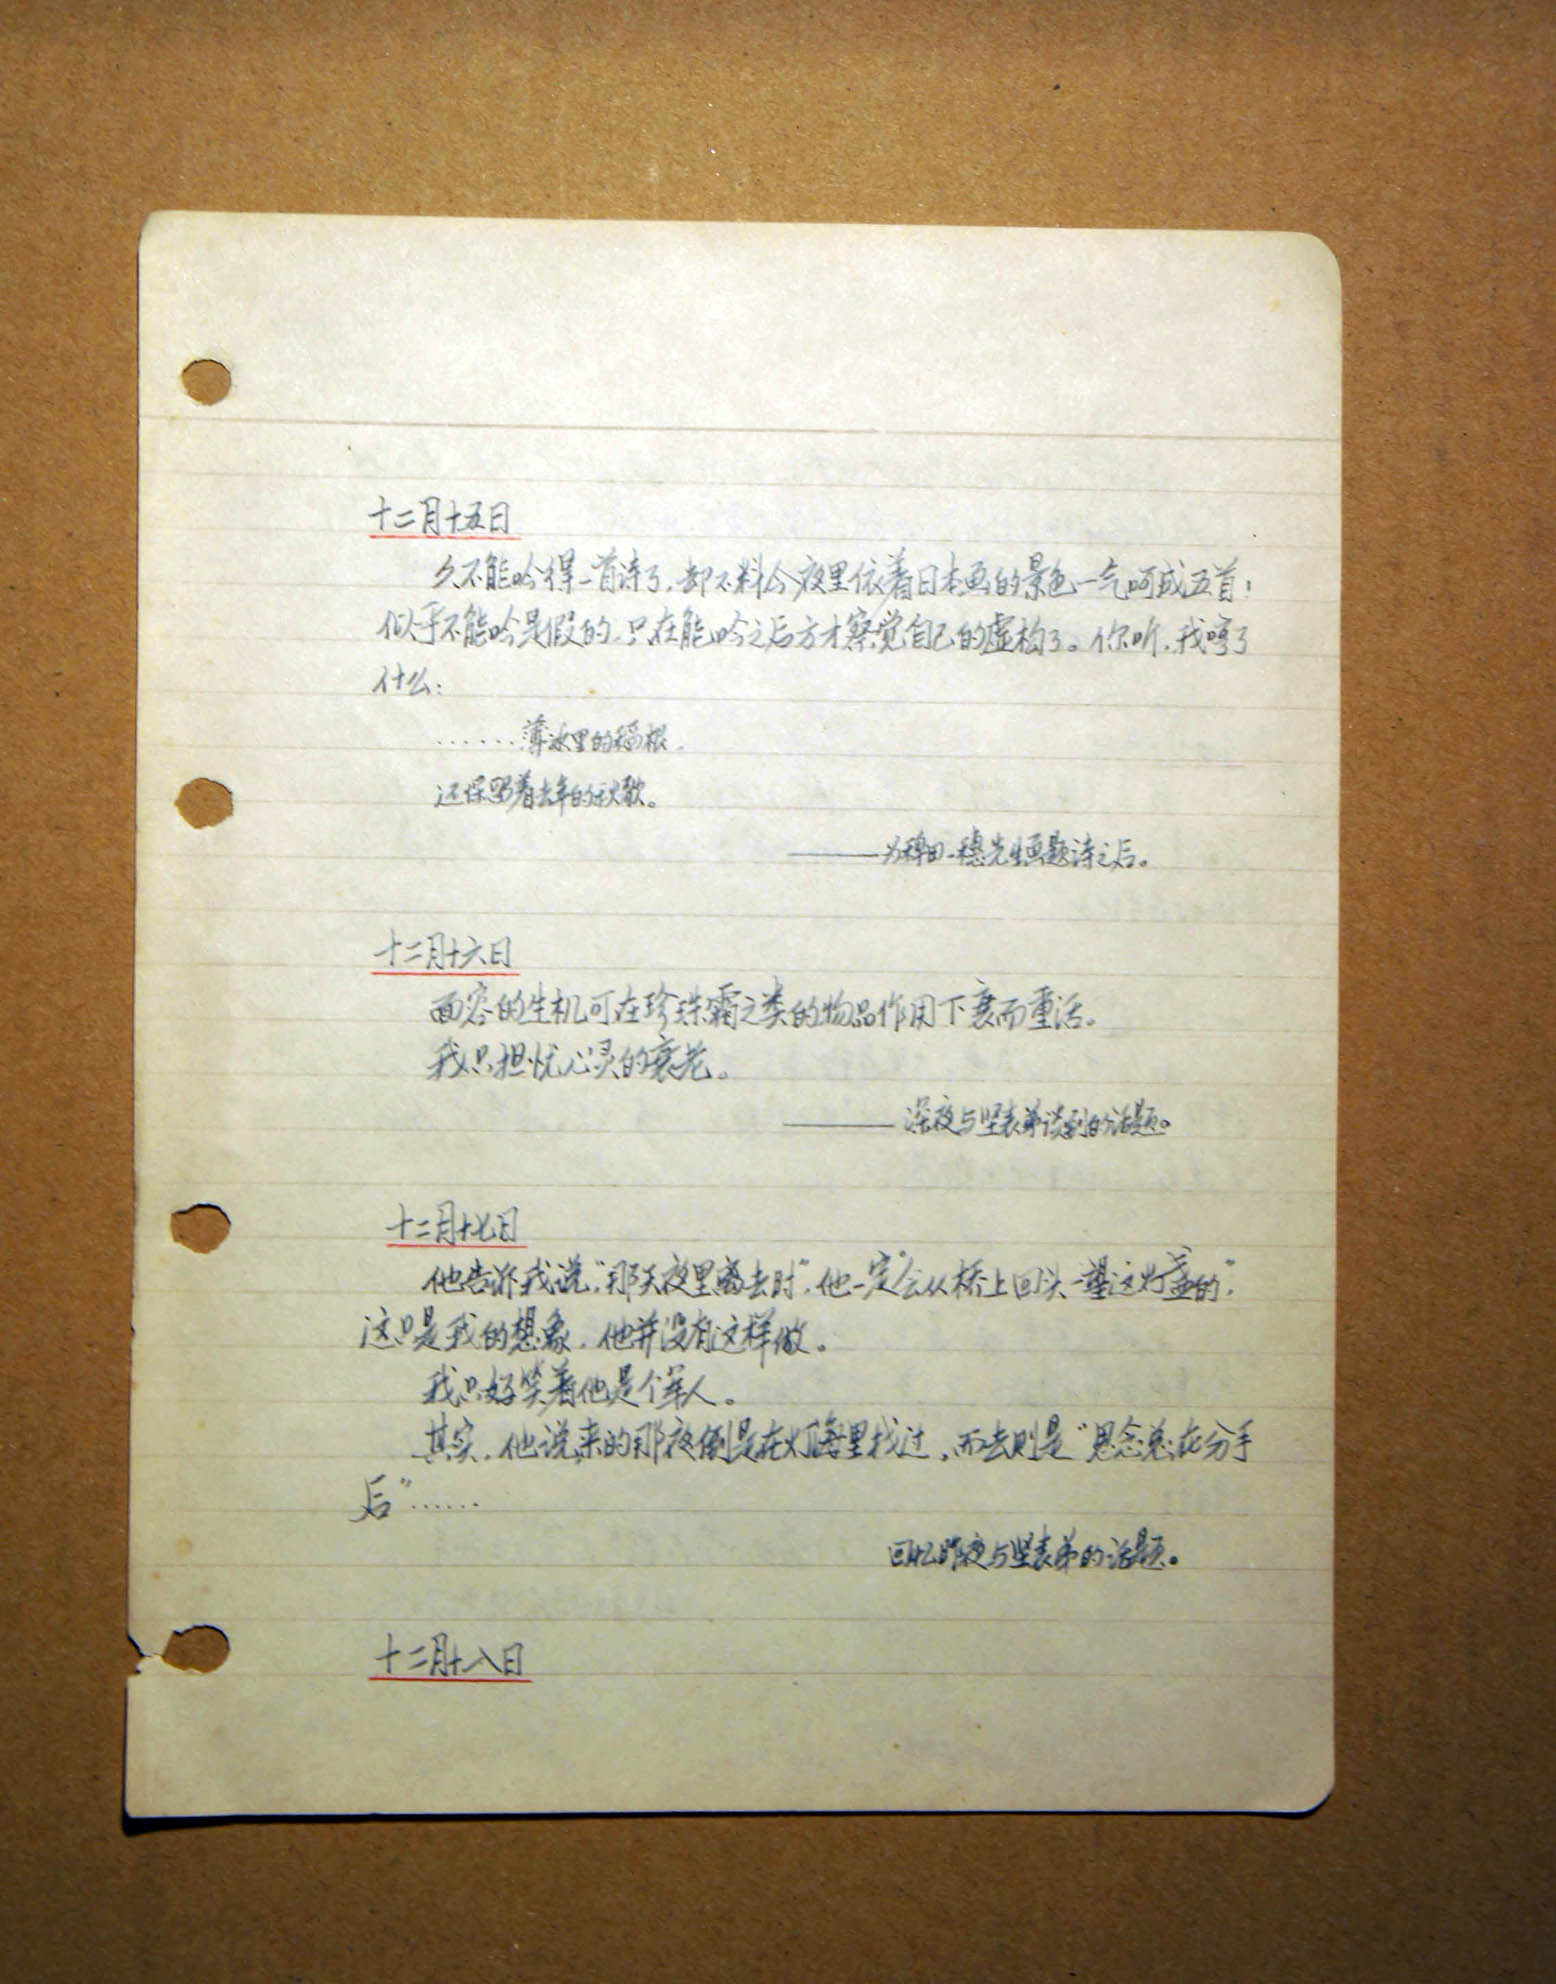 十二月十五日
久不能吟得一首诗了，却不料今夜里依着日本画的景色一气呵成五首；
似乎不能吟是假的，只在能吟之后方才察觉自己的虚构了。你听，我写了
什么：
……薄冰里的稻根，
还保留着去年的秋歌。
——为稗田一穗先生画题诗之后。
十二月十六日
面容的生机可在珍珠霜之类的物品作用下衰而重活。
我只担忧心灵的衰老。
——深夜与坚表弟谈到的话题。
十二月十七日
他告诉我说，“那天夜里离去时”，他一定“会从桥上回头一望这灯盏的”，
这只是我的想象，他并没有这样做。
我只好笑着他是个军人。
其实，他说来的那夜倒是在灯海里找过，而去则是“思念总在分手
后”……
回忆昨夜与坚表弟的话题。
十二月十八日